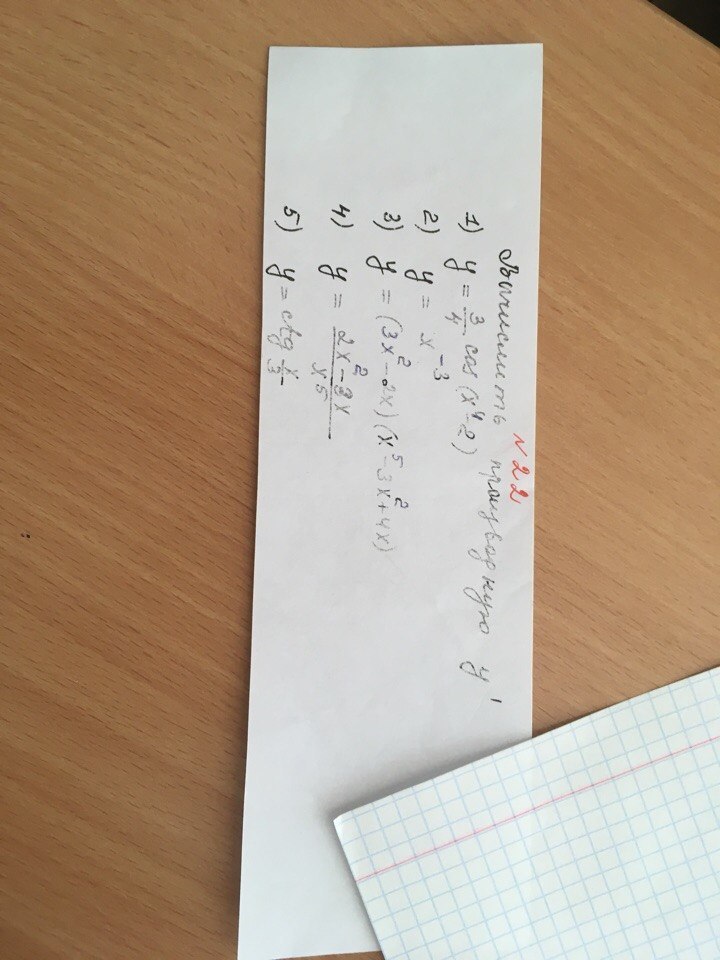 N 22
Вычислить производную y'
1) y = 3/4 cos(x⁴-2)
2) y = x⁻³
3) y = (3x²-2x)(x⁵-3x²+4x)
4) y = (2x²-3x)/x⁵
5) y = ctg x/3